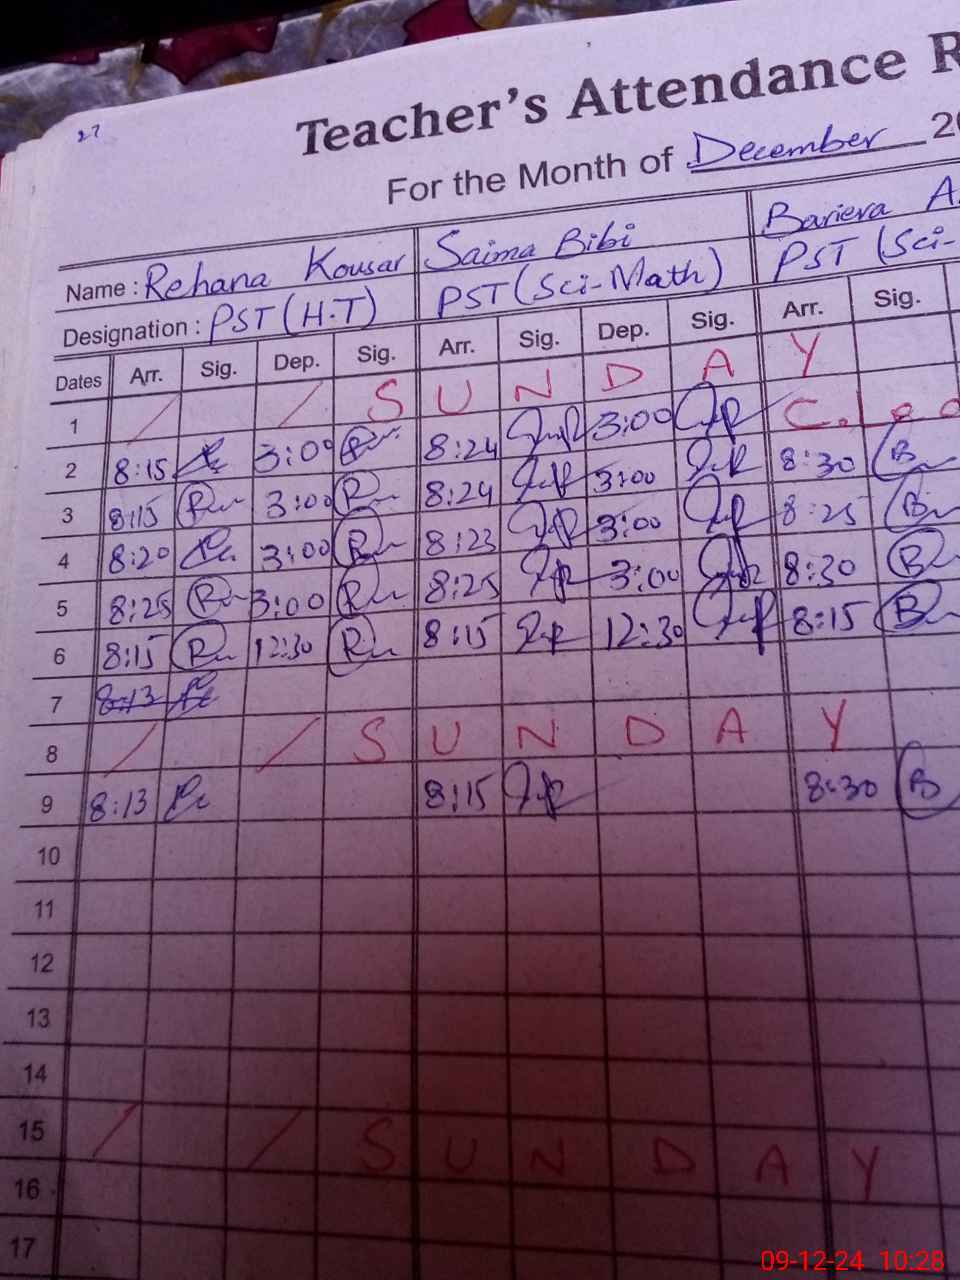 27
Teacher's Attendance R
For the Month of December 20
Name : Rehana Kousar Saima Bibi Bariera A.
Designation : PST (H.T) PST (Sci-Math) PST (Sci-
Dates Arr. Sig. Dep. Sig. Arr. Sig. Dep. Sig. Arr. Sig.
1 / / S U N D A Y
2 8:15 3:00 8:24 3:00 C. L
3 8:15 3:00 8:24 3:00 8:30
4 8:20 3:00 8:23 3:00 8:25
5 8:25 3:00 8:25 3:00 8:30
6 8:15 12:30 8:15 12:30 8:15
7 8:13
8 / / S U N D A Y
9 8:13 8:15 8:30
10
11
12
13
14
15 / / S U N D A Y
16
17
09-12-24 10:28